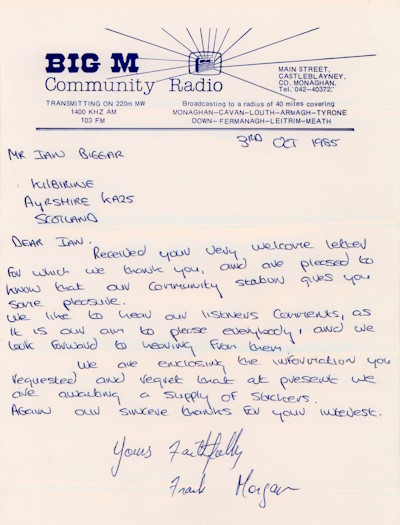 BIG M
Community Radio
MAIN STREET,
CASTLEBLAYNEY,
CO. MONAGHAN,
Tel. 042-40372.
TRANSMITTING ON 220m MW
1400 KHZ AM
103 FM
Broadcasting to a radius of 40 miles covering
MONAGHAN-CAVAN-LOUTH-ARMAGH-TYRONE
DOWN-FERMANAGH-LEITRIM-MEATH
3RD OCT 1985
MR IAN BIGGAR
KILBIRINE
AYRSHIRE KA25
SCOTLAND
DEAR IAN.
Received your very welcome letter
for which we thank you, and are pleased to
know that our Community station gives you
some pleasure.
We like to hear our listners Comments, as
it is our aim to please everybody, and we
look forward to hearing from them.
We are enclosing the information you
requested and regret that at present we
are awaiting a supply of Stickers.
Again our sincere thanks for your interest.
Yours Faithfully
Frank Morgan